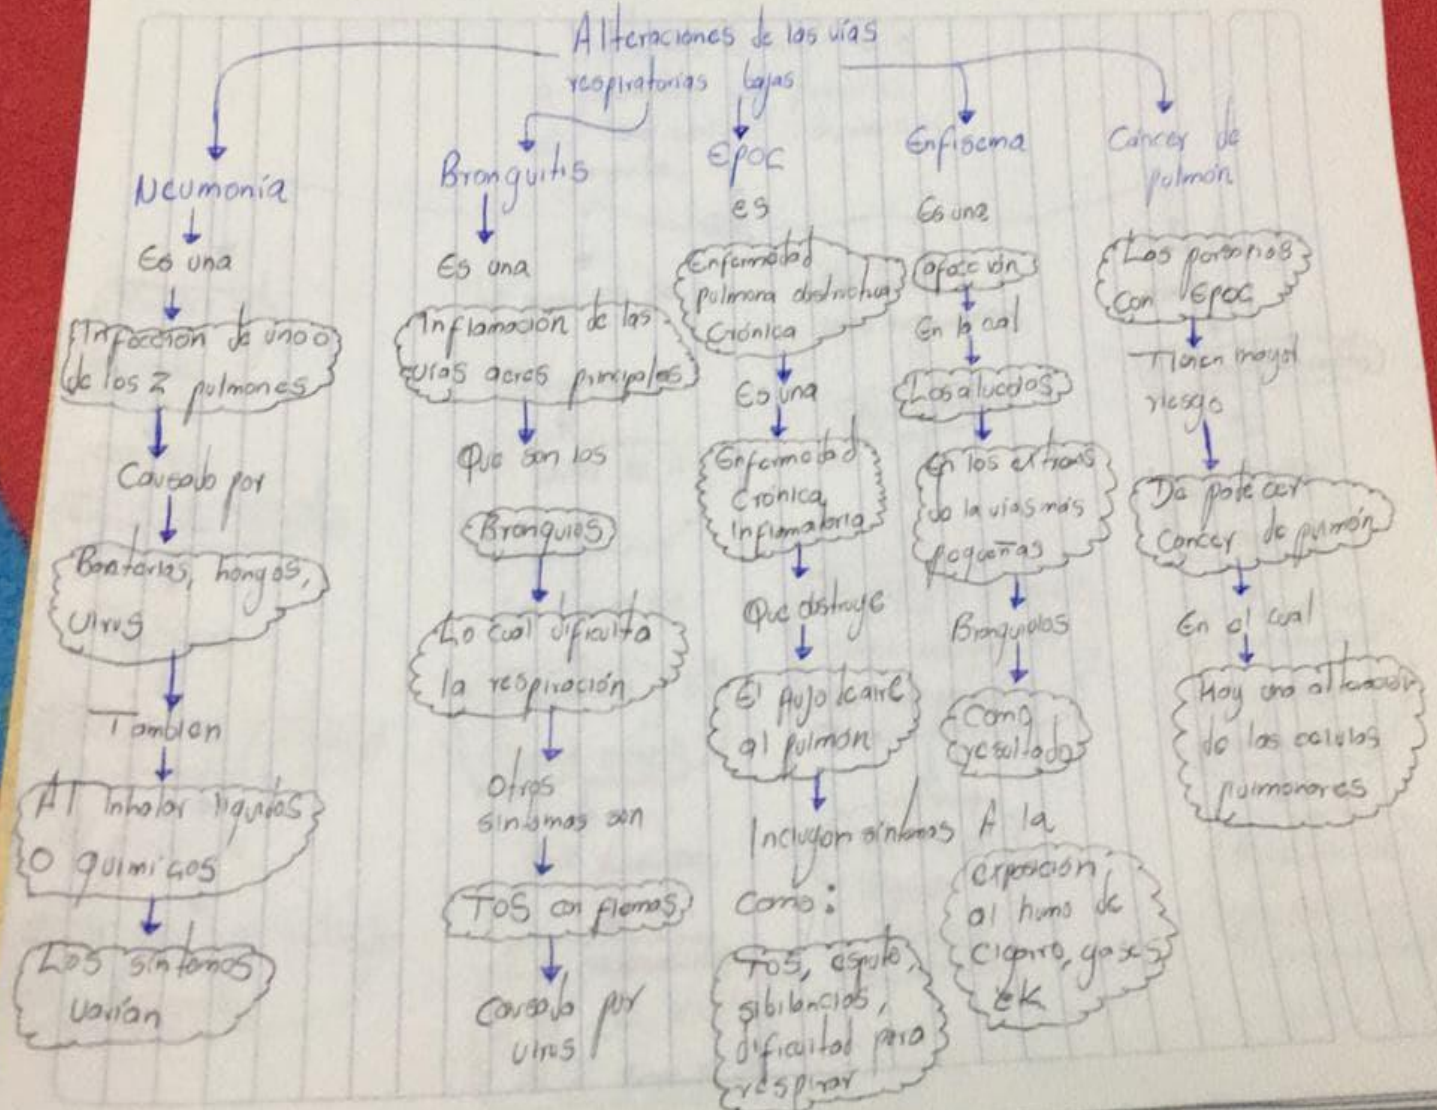 Alteraciones de las vías
respiratorias bajas
Neumonía
Es una
Infección de uno o
de los 2 pulmones
Causado por
Bacterias, hongos,
virus
Tambien
Al inhalar liquidos
O quimicos
Los sintomas
varían
Bronquitis
Es una
Inflamación de las
vías aeres principales
Que son los
Bronquios
Lo cual dificulta
la respiración
Otros
sintomas son
Tos con flemas
Causado por
virus
EPOC
es
Enfermedad
pulmona obstructiva
Crónica
Es una
Enfermedad
Crónica
Inflamatoria
Que obstruye
El flujo de aire
al pulmón
Incluyen sintomas
Como:
Tos, esputo,
sibilancias,
dificultad para
respirar
Enfisema
Es una
afección
En la cual
Los alveolos
En los extremos
de la vias más
pequeñas
Bronquiolos
Como
resultado
A la
exposición
al humo de
cigarro, gases
Cáncer de
pulmón
Las personas
con EPOC
Tienen mayor
riesgo
De padecer
cancer de pulmón
En el cual
Hay una alteración
de las celulas
pulmonares